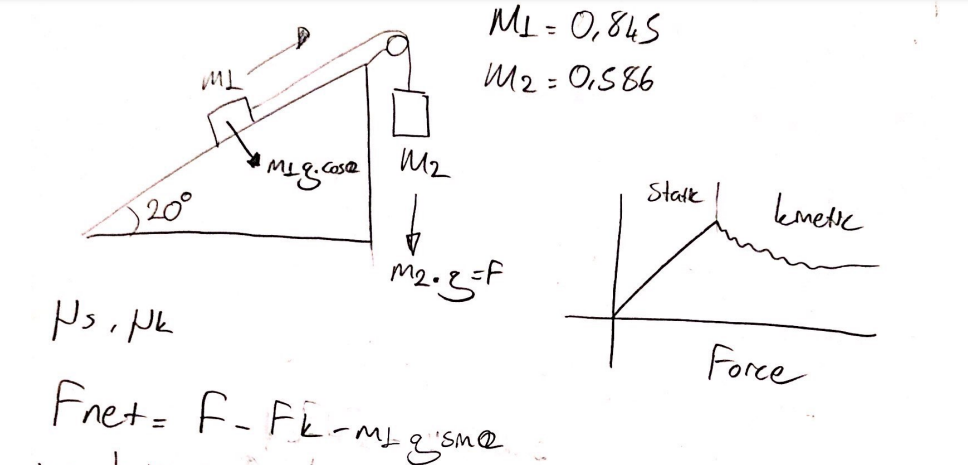 M1 = 0,845
M2 = 0.586
M1
M1g.cosθ
M2
20°
M2.g=F
Static
kinetic
μs, μk
Force
Fnet = F - Fk - M1 g sinθ